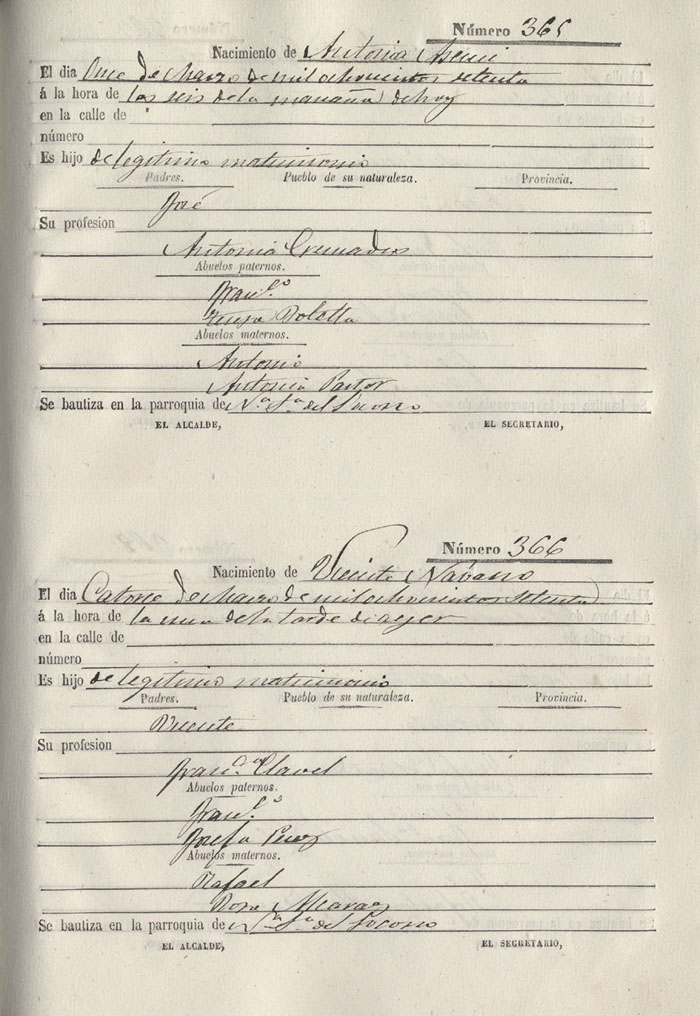 Número 365
Nacimiento de Antonia Asensi
El dia Once de Marzo de mil ochocientos setenta
á la hora de las seis de la mañana de hoy
en la calle de
número
Es hijo de legitimo matrimonio
Padres. Pueblo de su naturaleza. Provincia.
José
Su profesion
Antonia Cremades
Abuelos paternos.
Fran.co
Teresa
Abuelos maternos.
Antonio
Antonia Pastor
Se bautiza en la parroquia de N.a S.a del Socorro
EL ALCALDE, EL SECRETARIO,
Número 366
Nacimiento de Vicente Navarro
El dia Catorce de Marzo de mil ochocientos setenta
á la hora de la una de la tarde di ayer
en la calle de
número
Es hijo de legitimo matrimonio
Padres. Pueblo de su naturaleza. Provincia.
Vicente
Su profesion
Fran.ca Clavel
Abuelos paternos.
Fran.co
Josefa Perez
Abuelos maternos.
Rafael
Rosa
Se bautiza en la parroquia de N.a S.a del Socorro
EL ALCALDE, EL SECRETARIO,